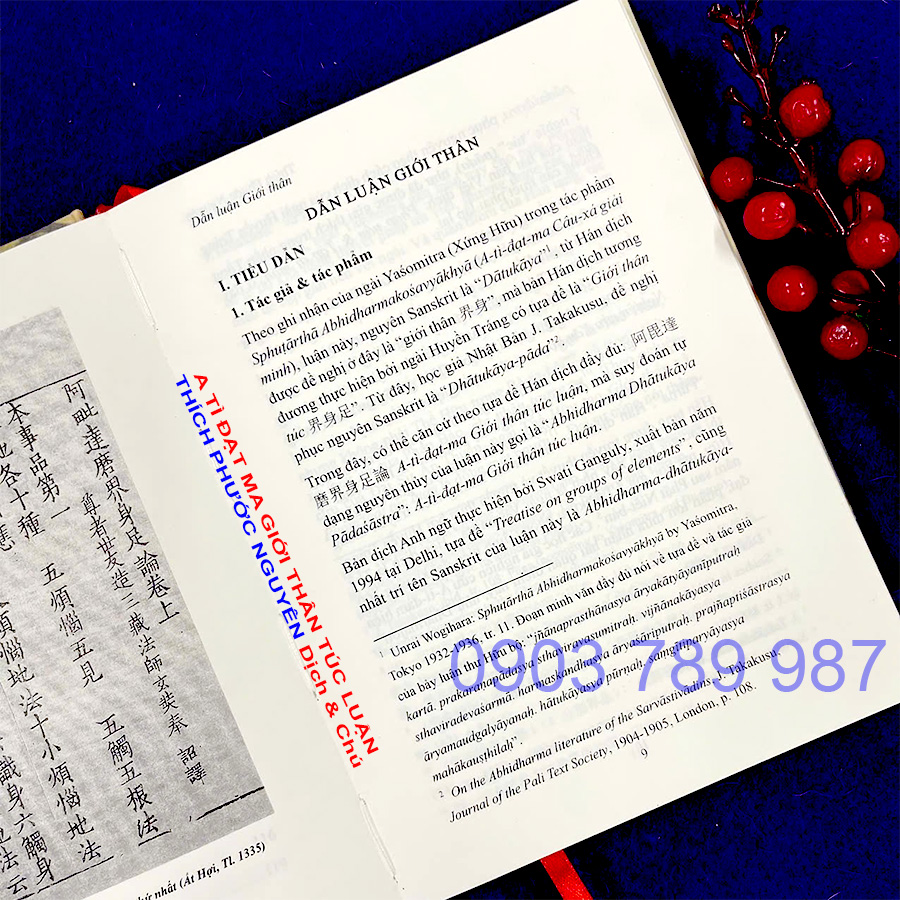 阿毗達磨界身足論卷上
尊者世友造 三藏法師玄奘奉 詔譯
本事品第一
五煩惱五見 五觸五根法
ứ nhất (Ất Hợi, Tl. 1335)
A TÌ ĐẠT MA GIỚI THÂN TÚC LUẬN
THÍCH PHƯỚC NGUYÊN Dịch & Chú
Dẫn luận Giới thân
DẪN LUẬN GIỚI THÂN
I. TIỂU DẪN
1. Tác giả & tác phẩm
Theo ghi nhận của ngài Yaśomitra (Xứng Hữu) trong tác phẩm
Sphuṭārthā Abhidharmakośavyākhyā (A-tì-đạt-ma Câu-xá giải
minh), luận này, nguyên Sanskrit là “Dātukāya”¹, từ Hán dịch
được đề nghị ở đây là “giới thân 界身”, mà bản Hán dịch tương
đương thực hiện bởi ngài Huyền Tráng có tựa đề là “Giới thân
túc 界身足”. Từ đây, học giả Nhật Bản J. Takakusu, đề nghị
phục nguyên Sanskrit là “Dhātukāya-pāda”².
Trong đây, có thể căn cứ theo tựa đề Hán dịch đầy đủ: 阿毘達
磨界身足論 A-tì-đạt-ma Giới thân túc luận, mà suy đoán tự
dạng nguyên thủy của luận này gọi là “Abhidharma Dhātukāya
Pādaśāstra”: A-tì-đạt-ma Giới thân túc luận.
Bản dịch Anh ngữ thực hiện bởi Swati Ganguly, xuất bản năm
1994 tại Delhi, tựa đề “Treatise on groups of elements”, cũng
nhất trí tên Sanskrit của luận này là Abhidharma-dhātukāya-
¹ Unrai Wogihara: Sphuṭārthā Abhidharmakośavyākhyā by Yaśomitra,
Tokyo 1932-1936, tr. 11. Đoạn minh văn đầy đủ nói về tựa đề và tác giả
của bảy luận thư Hữu bộ: “jñānaprasthānasya āryakātyāyanīputraḥ
kartā. prakaraṇapādasya sthaviravasumitraḥ. vijñānakāyasya
sthaviradevaśarmā. dharmaskandhasya āryaśāriputraḥ. prajñaptiśāstrasya
āryamaudgalyāyanaḥ. dhātukāyasya pūrṇaḥ. saṃgītiparyāyasya
mahākauṣṭhilaḥ”.
² On the Abhidharma literature of the Sarvāstivādins, J. Takakusu,
Journal of the Pali Text Society, 1904-1905, London. p. 108.
9
0903 789 987